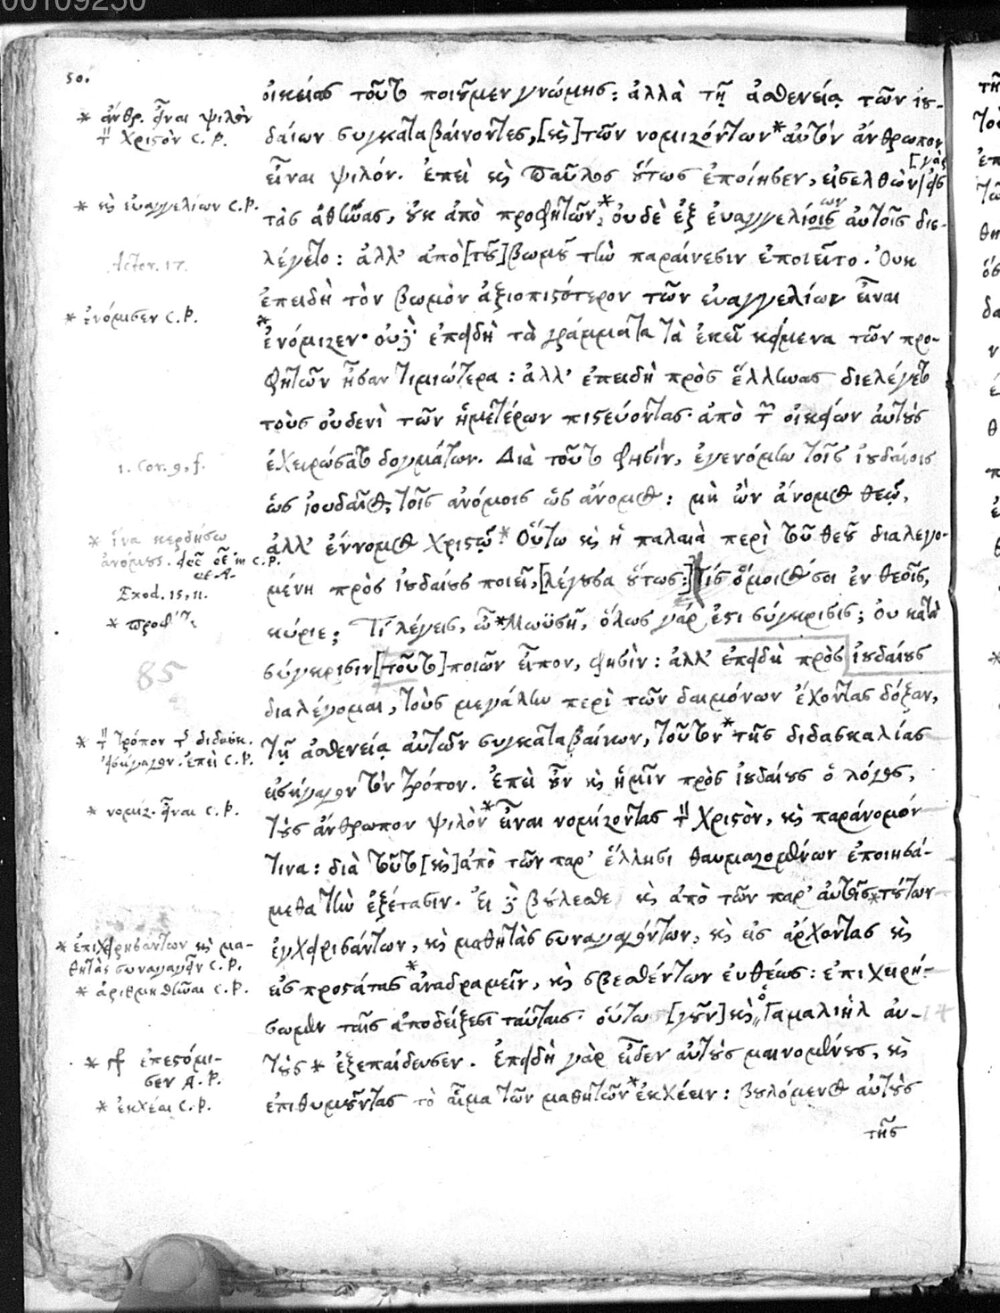 00109250
50.
οἰκείας τοῦτο ποιοῦμεν γνώμης: ἀλλὰ τῇ ἀσθενείᾳ τῶν ἰου-
δαίων συγκαταβαίνοντες, [καὶ] τῶν νομιζόντων * αὐτὸν ἄνθρωπον
εἶναι ψιλόν. ἐπεὶ καὶ Παῦλος οὕτως ἐποίησεν, εἰσελθὼν [γὰρ] εἰς
τὰς ἀθήνας, οὐκ ἀπὸ προφητῶν, * οὐδὲ ἐξ εὐαγγελίοις ων αὐτοῖς διε-
λέγετο: ἀλλ' ἀπὸ [τοῦ] βωμοῦ τὴν παραίνεσιν ἐποιεῖτο. Οὐκ
ἐπειδὴ τὸν βωμὸν ἀξιοπιστότερον τῶν εὐαγγελίων εἶναι
* ἐνόμιζεν· οὐδ' ἐπειδὴ τὰ γράμματα τὰ ἐκεῖ κείμενα τῶν προ-
φητῶν ἦσαν τιμιώτερα: ἀλλ' ἐπειδὴ πρὸς ἕλληνας διελέγετο
τοὺς οὐδενὶ τῶν ἡμετέρων πιστεύοντας· ἀπὸ τῶν οἰκείων αὐτοὺς
ἐχειρώσατο δογμάτων. Διὰ τοῦτο φησὶν, ἐγενόμην τοῖς ἰουδαίοις
ὡς ἰουδαῖος, τοῖς ἀνόμοις ὡς ἄνομος: μὴ ὢν ἄνομος θεῷ,
ἀλλ' ἔννομος Χριστῷ. * Οὕτω καὶ ἡ παλαιὰ περὶ τοῦ θεοῦ διαλεγο-
μένη πρὸς ἰουδαίους ποιεῖ, [λέγουσα οὕτως:] τίς ὅμοιός σοι ἐν θεοῖς,
κύριε; Τί λέγεις, ὦ * Μωϋσῆ, ὅλως γάρ ἐστι σύγκρισις; Οὐ κατὰ
σύγκρισιν [τοῦτο] ποιῶν εἶπον, φησὶν: ἀλλ' ἐπειδὴ πρὸς ἰουδαίους
διαλέγομαι, τοὺς μεγάλην περὶ τῶν δαιμόνων ἔχοντας δόξαν,
τῇ ἀσθενείᾳ αὐτῶν συγκαταβαίνων, τοῦτον * τῆς διδασκαλίας
εἰσήγαγον τὸν τρόπον. Ἐπεὶ οὖν καὶ ἡμῖν πρὸς ἰουδαίους ὁ λόγος,
τοὺς ἄνθρωπον ψιλὸν * εἶναι νομίζοντας τὸν Χριστὸν, καὶ παράνομόν
τινα: διὰ τοῦτο [καὶ] ἀπὸ τῶν παρ' ἕλλησι θαυμαζομένων ἐποιησά-
μεθα τὴν ἐξέτασιν. Εἰ δὲ βούλεσθε καὶ ἀπὸ τῶν παρ' αὐτοῖς * τούτων
ἐγχειρισάντων, καὶ μαθητὰς συναγαγόντων, καὶ εἰς ἄρχοντας καὶ
εἰς προστάτας * ἀναδραμεῖν, καὶ σβεσθέντων εὐθέως: ἐπιχειρή-
σωμεν ταῖς ἀποδείξεσι ταύταις. οὕτω [γοῦν] καὶ ὁ Γαμαλιὴλ αὐ-
τοὺς * ἐξεπαίδευσεν. Ἐπειδὴ γὰρ εἶδεν αὐτοὺς μαινομένους, καὶ
ἐπιθυμοῦντας τὸ αἷμα τῶν μαθητῶν * ἐκχέειν: βουλόμενος αὐτοὺς
τῆς
* ἄνθρ. εἶναι ψιλὸν
τὸν Χριστὸν C.P.
* καὶ εὐαγγελίων C.P.
Actor. 17.
* ἐνόμισεν C.P.
1. Cor. 9, f.
* ἵνα κερδήσω
ἀνόμους.
Exod. 15, 11.
* προφῆτα
85
* τὸν τρόπον τῆς διδασκ.
εἰσήγαγον. ἐπεὶ C.P.
* νομίζ. εἶναι C.P.
* ἐπιχειρησάντων καὶ μα-
θητὰς συναγαγεῖν C.P.
* ἀριθμηθῆναι C.P.
14
* ἐπεστόμι-
σεν A.P.
* ἐκχέαι C.P.